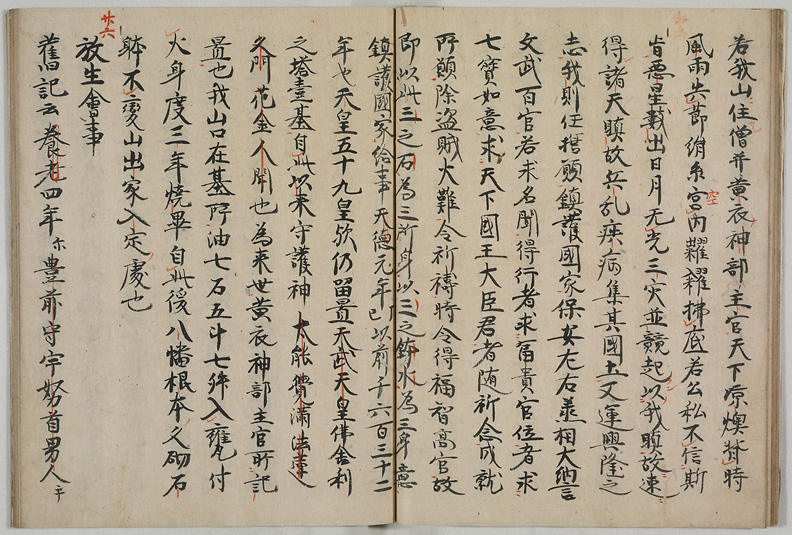 若我山住僧并黄衣神部主官天下涼燠替時
風雨失節絹糸宮内糶糴拂底若公私不信斯
皆悪星載出日月无光三灾並競起以我瞋故速
得諸天瞋故兵乱疾病集其國土又運興隆之
志我則任捨願鎮護國家保安左右丞相大納言
文武百官若求名聞得行者求冨貴官位者求
七寶如意求天下國王大臣君者随祈念成就
所願除盗賊火難令祈禱時令得福智高官故
即以此三之石為三所身以三之鉢水為三身意
鎮護國家給事天德元年巳以前千六百三十二
年也天皇五十九皇欤仍留置天武天皇佛舎利
之塔壹基自此以来守護神大能貴満法遠
久門花金人開也為来世黄衣神部主官所記
置也我山口在基所油七石五斗七絣入甕付
火身度三年燒畢自此後八幡根本久砌石
躰不変山出家入定處也
空
廿六
放生會事
舊記云養老四年尓豊前守宇努首男人